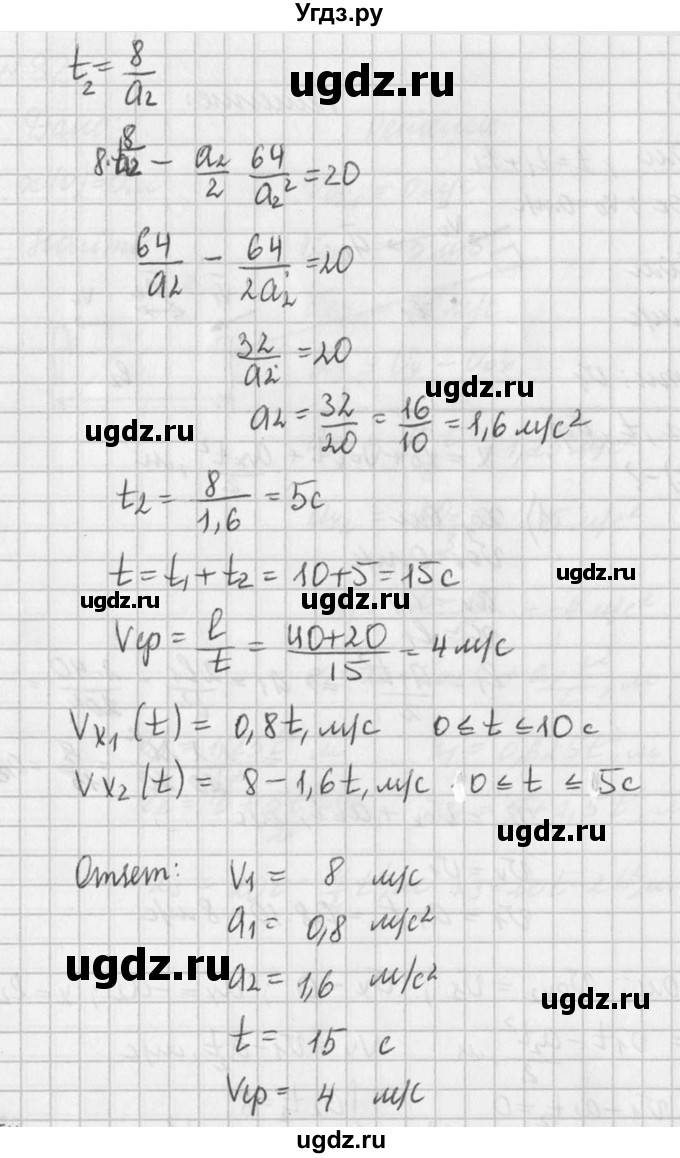 Угдз.ру
t₂ = 8/a₂
ugdz.ru
8·8/a₂ − a₂/2 64/a₂² = 20
64/a₂ − 64/2a₂ = 20
32/a₂ = 20
ugdz.ru
a₂ = 32/20 = 16/10 = 1,6 м/с²
ugdz.ru
t₂ = 8/1,6 = 5с
t = t₁ + t₂ = 10+5 = 15с
ugdz.ru
ugdz.ru ugdz.ru
Vср = l/t = 40+20/15 = 4 м/с
Vx₁(t) = 0,8t, м/с 0 ≤ t ≤ 10 с
Vx₂(t) = 8 − 1,6t, м/с 0 ≤ t ≤ 5с
ugdz.ru
Ответ: V₁ = 8 м/с
a₁ = 0,8 м/с²
ugdz.ru
a₂ = 1,6 м/с²
ugdz.ru
t = 15 с
Vср = 4 м/с
ugdz.ru